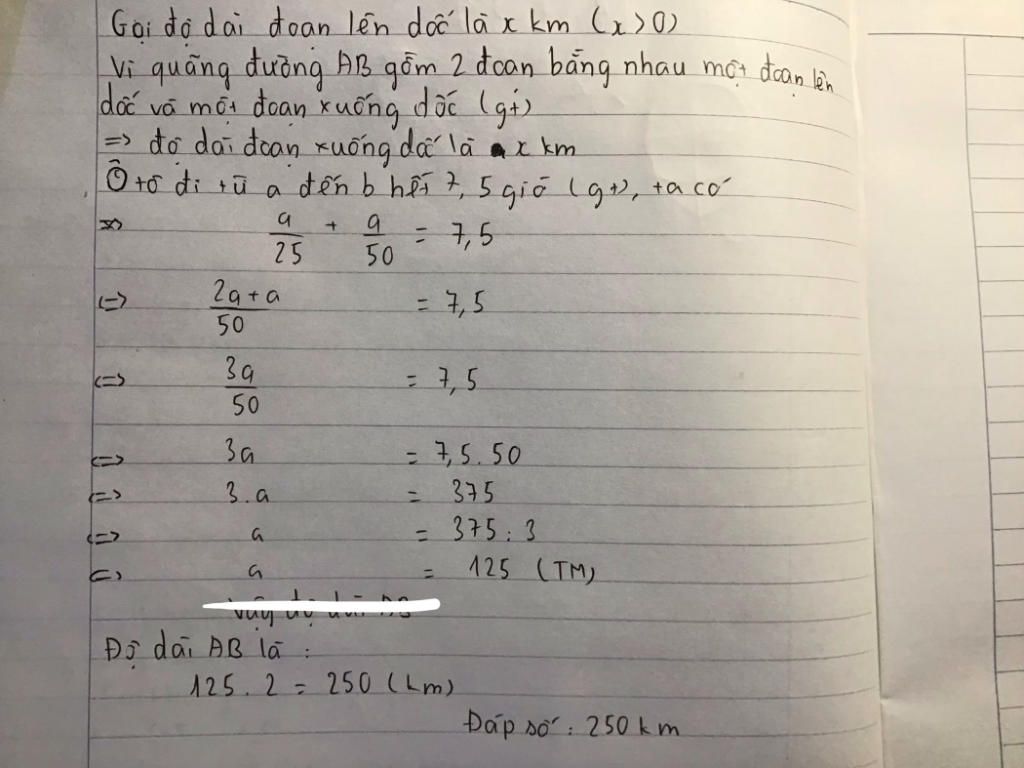 Gọi độ dài đoạn lên dốc là x km (x>0)
Vì quãng đường AB gồm 2 đoạn bằng nhau một đoạn lên
dốc và một đoạn xuống dốc (gt)
=> độ dài đoạn xuống dốc là x km
Ô tô đi từ a đến b hết 7,5 giờ (gt), ta có
=> a/25 + a/50 = 7,5
<=> 2a+a/50 = 7,5
<=> 3a/50 = 7,5
<=> 3a = 7,5.50
<=> 3.a = 375
<=> a = 375:3
<=> a = 125 (TM)
Độ dài AB là :
125.2 = 250 (km)
Đáp số : 250 km